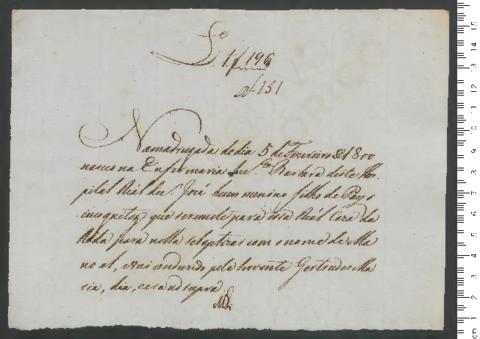 L.º 1 f 196
N. 151
Na madrugada do dia 5 de Fevereiro de 1800
nasceo na Enfermaria de S.ta Barbara deste Hos
pital Real de S. José hum menino filho de Pays
incognitos, que se remete para essa Real Caza da
Roda para nella se baptizar com o nome de Ma
noel, e vai conduzido pela Servente Gertrudes Ma
ria, dia, era ut supra